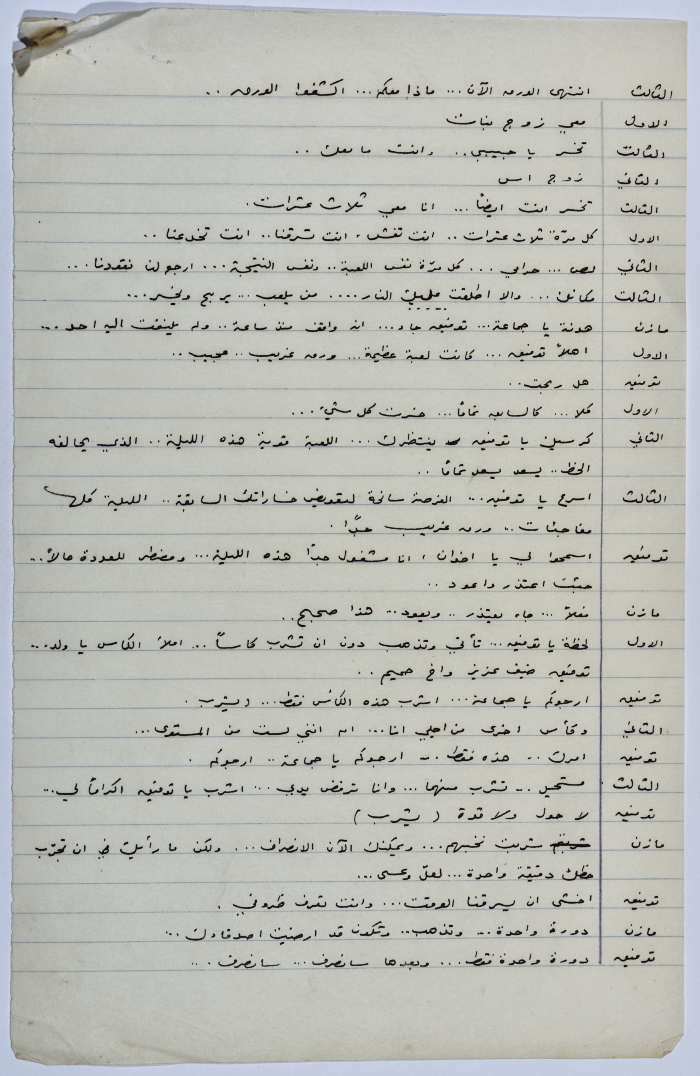 الثالث انتهى الورق الآن... ماذا معكم... اكشفوا الورق ..
الاول معي زوج بنات
الثالث تخسر يا حبيبي.. وانت ما معك ..
الثاني زوج اس
الثالث تخسر انت ايضاً... انا معي ثلاث عشرات.
الاول كل مرّة ثلاث عشرات .. انت تغش، انت تسرقنا.. انت تخدعنا ..
الثاني لص... حرامي... كل مرّة نفس اللعبة.. ونفس النتيجة... ارجو لن نقودنا...
الثالث مكانك... والا اطلقت عليك النار.... من يلعب... يربح ويخسر...
مازن هدنة يا جماعة... توفيق جاء... انه واقف منذ ساعة.. ولم يلتفت اليه احد...
الاول اهلاً توفيق... كانت لعبة عظيمة... ورق غريب.. عجيب..
توفيق هل ربحت..
الاول كلا... كالسابق تماماً... خسرت كل شيء...
الثاني كرسيك يا توفيق ينتظرك... اللعبة قوية هذه الليلة.. الذي يحالفه
الحظ.. يسعد يسعد تماماً ..
الثالث اسرع يا توفيق... الفرصة سانحة لتعويض خساراتك السابقة.. الليلة كلها
مفاجئات.. ورق غريب جدّاً.
توفيق اسمحوا لي يا اخوان، انا مشغول جداً هذه الليلة... ومضطر للعودة حالاً...
جئت اعتذر واعود ..
مازن فعلاً... جاء يعتذر.. ويعود... هذا صحيح..
الاول لحظة يا توفيق... تأتي وتذهب دون ان تشرب كاساً... املأ الكاس يا ولد...
توفيق ضيف عزيز واخ حميم ..
توفيق ارجوكم يا جماعة... اشرب هذه الكأس فقط... (يشرب.
الثاني وكأس اخرى من اجلي انا... ام انني لست من المستوى...
توفيق امرك.. هذه فقط.. ارجوكم يا جماعة.. ارجوكم .
الثالث مستحيل.. تشرب منهما... وانا ترفض يدي... اشرب يا توفيق اكراماً لي...
توفيق لا حول ولا قوة (يشرب)
مازن شربت نخبهم... ويمكنك الآن الانصراف... ولكن ما رأيك في ان تجرّب
حظك دقيقة واحدة... لعلّ وعسى...
توفيق اخشى ان يسرقنا الوقت... وانت تعرف ظروفي .
مازن دورة واحدة.. وتذهب.. وتكون قد ارضيت اصدقاءك...
توفيق دورة واحدة فقط... وبعدها سانصرف... سانصرف...